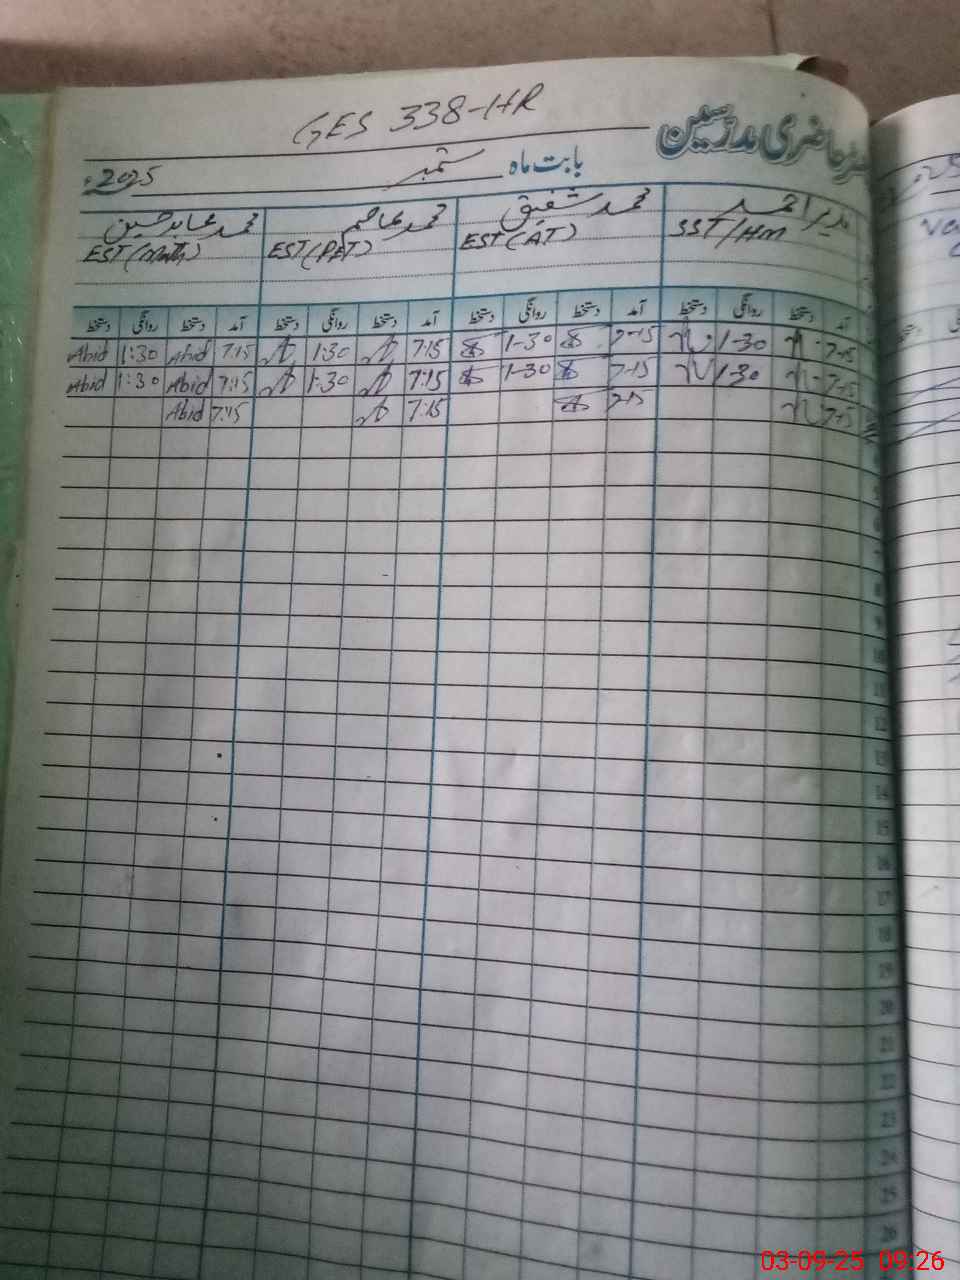 GES 338-HR
حاضری مدرسین
بابت ماہ ستمبر 2025ء
احمد محمد شفیق محمد عاصم محمد عابد حسین
SST/HM EST(AT) EST(PET) EST(Math)
آمد دستخط روانگی دستخط آمد دستخط روانگی دستخط آمد دستخط روانگی دستخط آمد دستخط روانگی دستخط
7-15 1-30 7-15 1-30 7:15 1:30 7:15 Abid 1:30 Abid
7-15 1-30 7-15 1-30 7:15 1:30 7:15 Abid 1:30 Abid
7-15 7-15 7:15 7:15 Abid
8
9
10
11
12
13
14
15
16
17
18
19
20
21
22
23
24
25
26
03-09-25 09:26